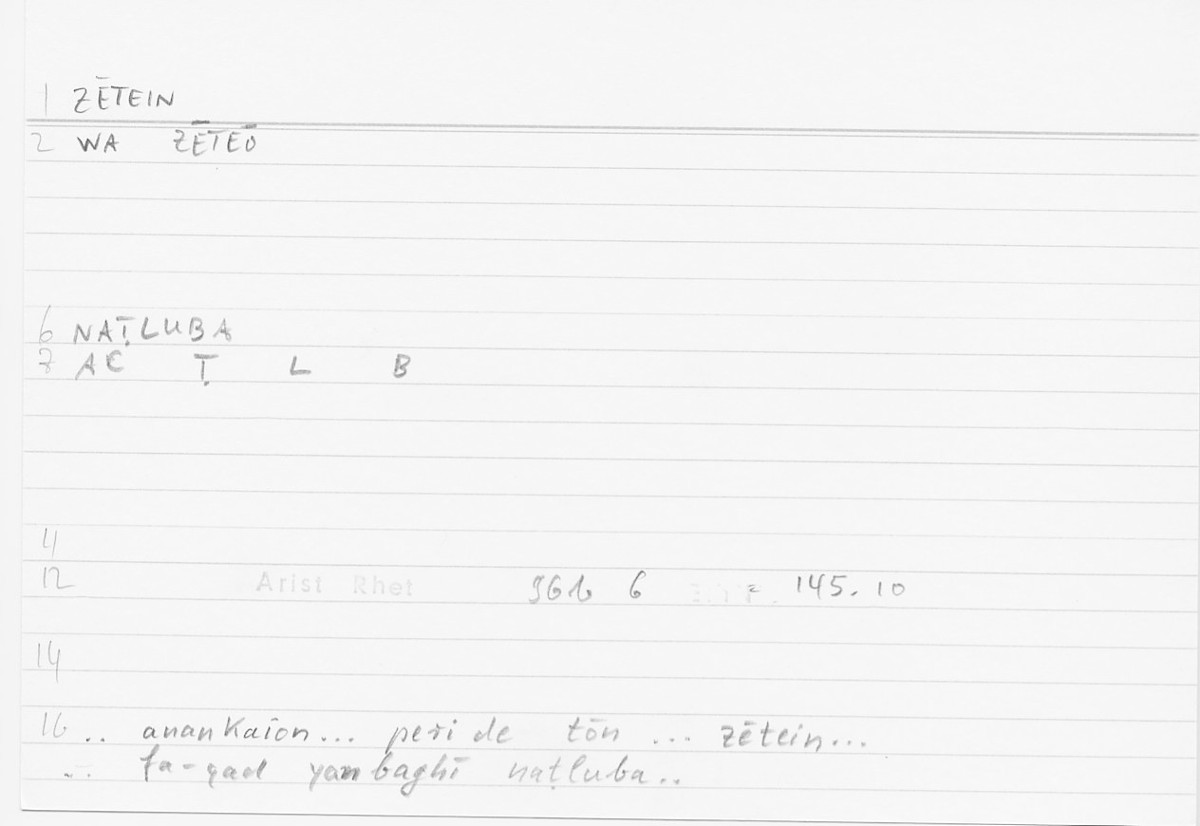 1 ZĒTEIN
2 WA ZĒTEŌ
6 NAṬLUBA
7 AC Ṭ L B
11
12 Arist Rhet 96b 6 = 145.10
14
16 .. anankaīon... peri de tōn ... zētein...
... fa-qad yanbaghī naṭluba..